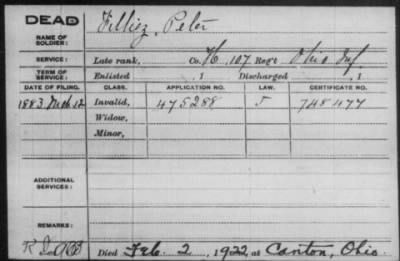 DEAD
NAME OF SOLDIER: Filliez, Peter
SERVICE: Late rank, Co. H, 107 Reg't Ohio Inf.
TERM OF SERVICE: Enlisted , 1 Discharged , 1
DATE OF FILING. CLASS. APPLICATION NO. LAW. CERTIFICATE NO.
1883 Mch 12 Invalid, 475288 J 748477
Widow,
Minor,
ADDITIONAL SERVICES:
REMARKS:
Died Feb. 2, 1922, at Canton, Ohio.